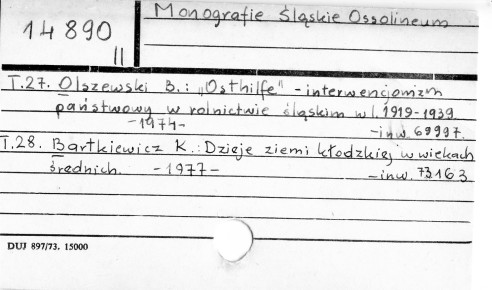 14 890
II
Monografie Śląskie Ossolineum
T.27. Olszewski B.: „Osthilfe" - interwencjonizm
państwowy w rolnictwie śląskim w l. 1919-1939
-1974- -inw. 69997.
T.28. Bartkiewicz K.: Dzieje ziemi kłodzkiej w wiekach
średnich. -1977- -inw. 73163
DUJ 897/73. 15000